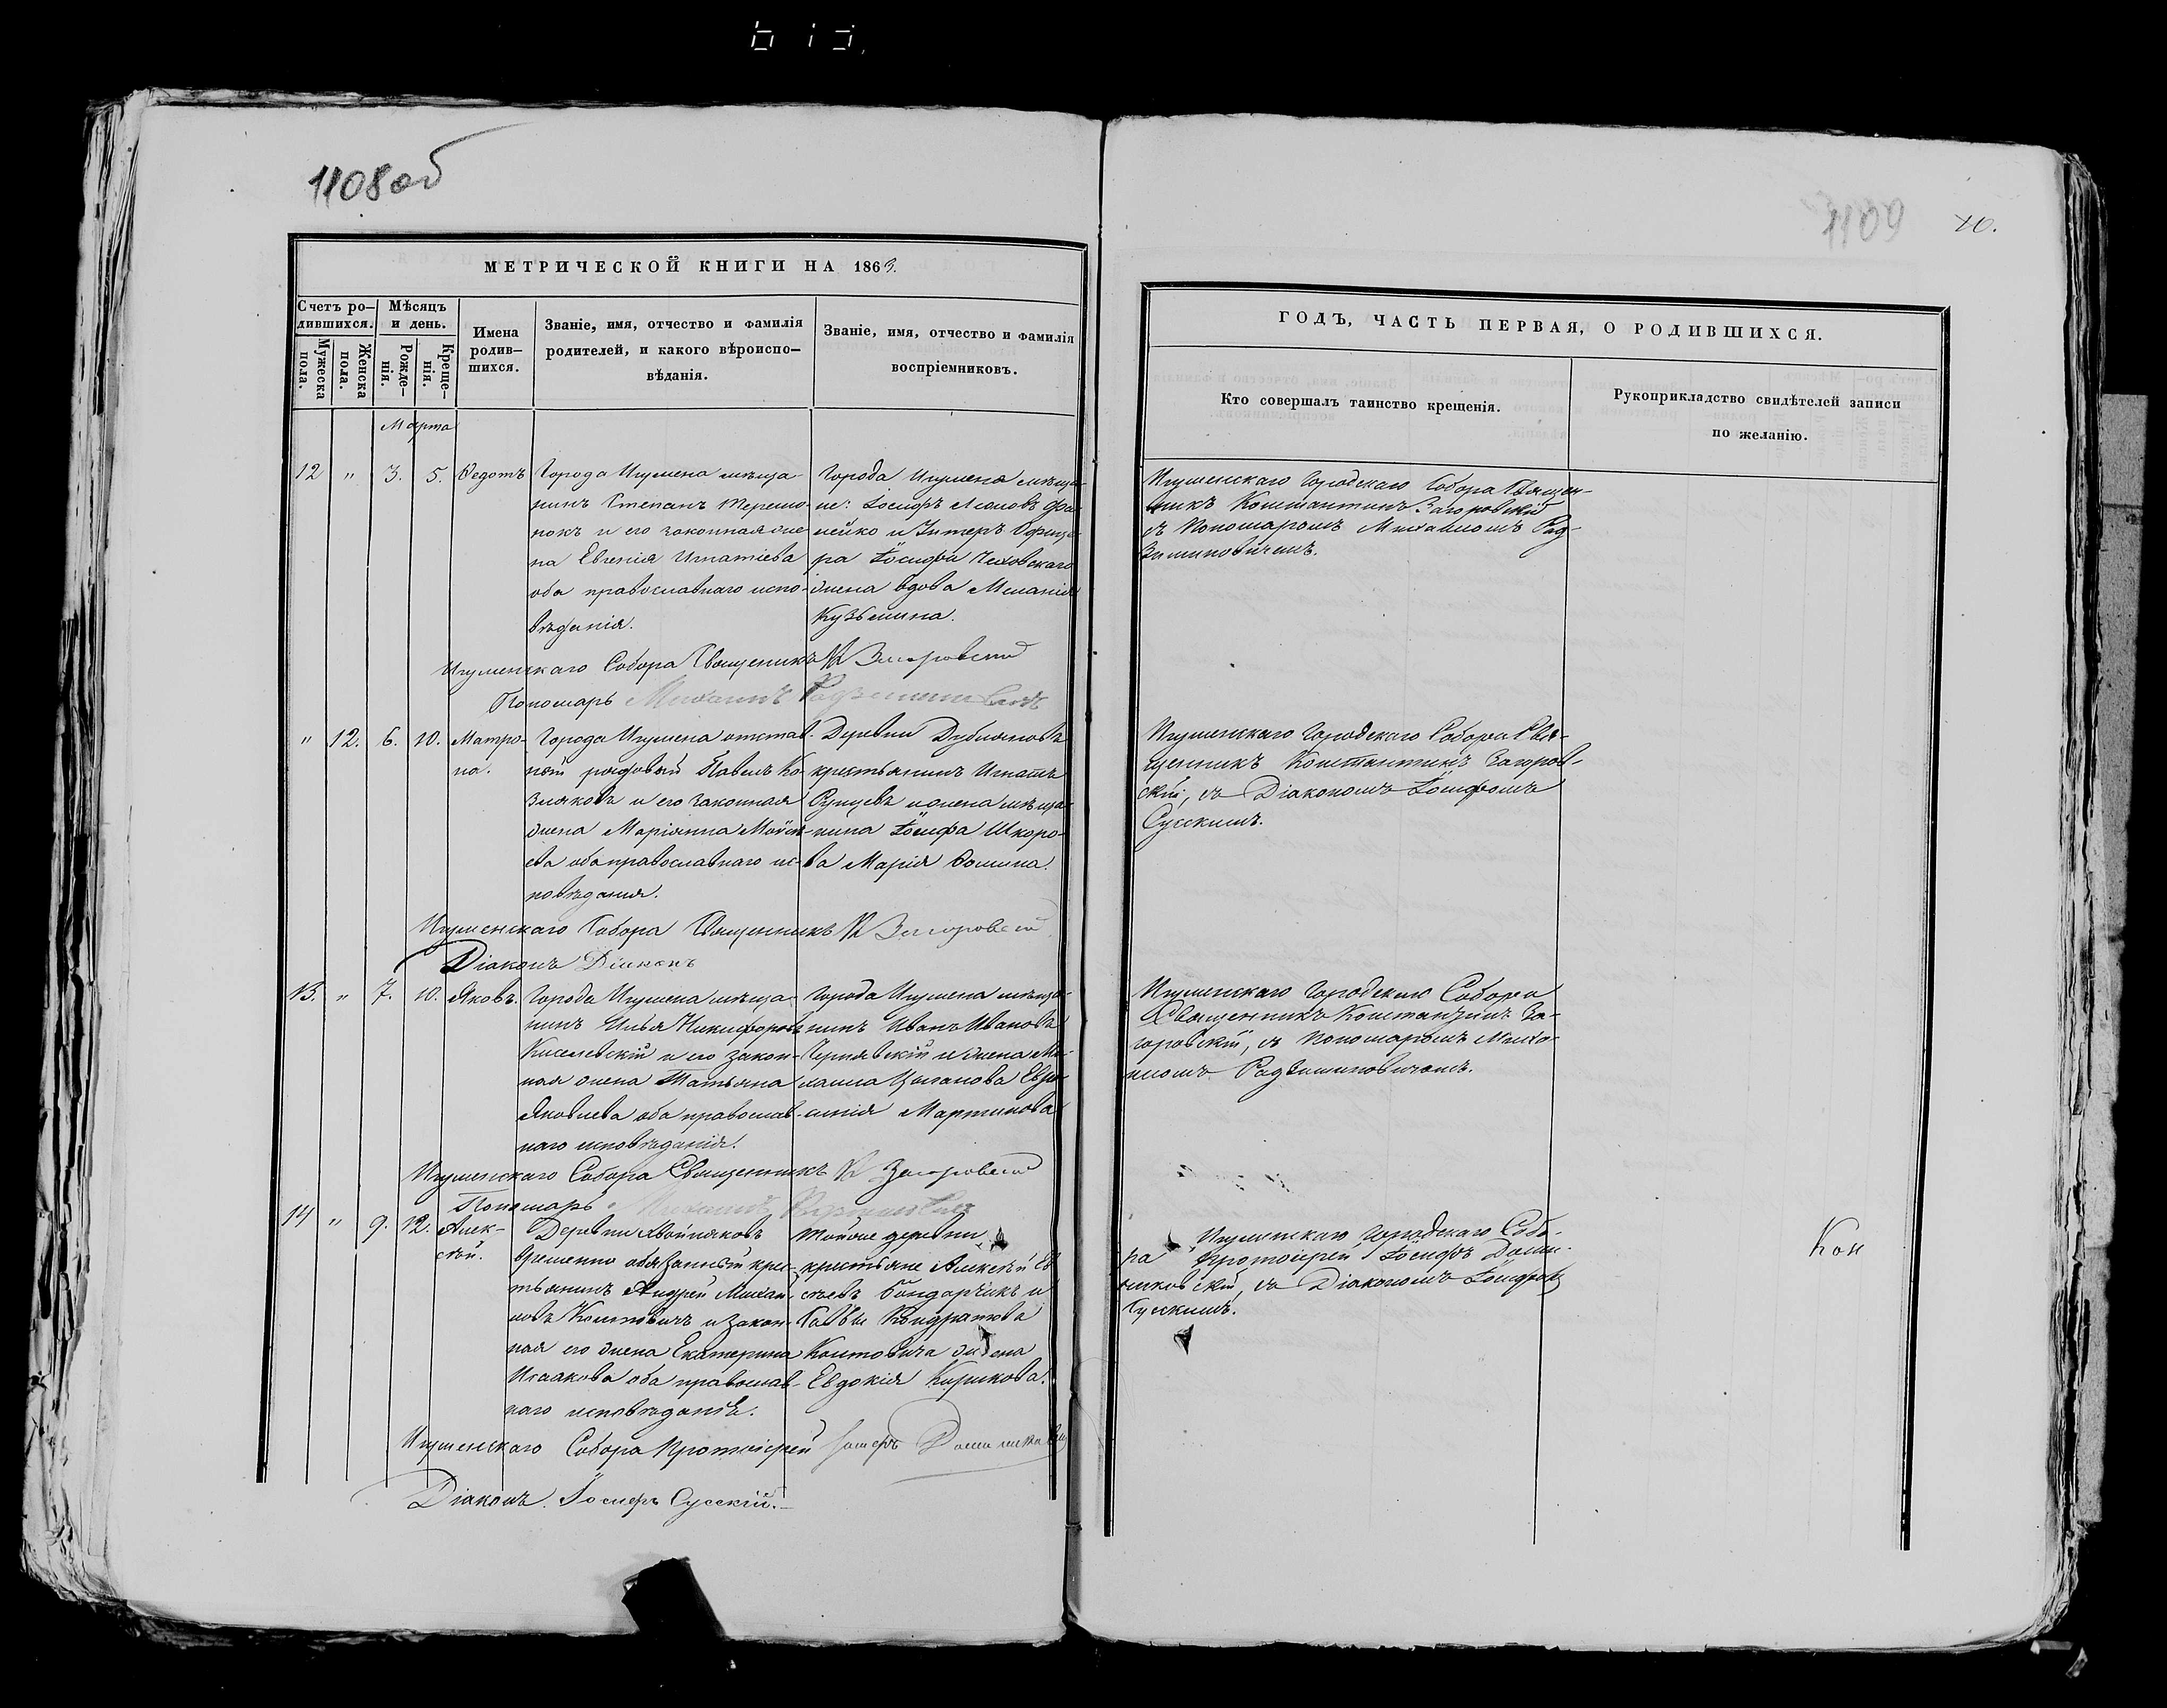 1108 об
МЕТРИЧЕСКОЙ КНИГИ НА 1863.
Счетъ ро-
дившихся.
Мѣсяцъ
и день.
Мужеска
пола.
Женска
пола.
Рожде-
нія.
Креще-
нія.
Имена
родив-
шихся.
Званіе, имя, отчество и фамилія
родителей, и какого вѣроиспо-
вѣданія.
Званіе, имя, отчество и фамилія
воспріемниковъ.
Марта
12 " 3. 5. Ѳедотъ
Города Игумена мѣща-
нинъ Степанъ
и его законная же-
на Евгенія Игнатіева
оба православнаго испо-
вѣданія.
Города Игумена мѣща-
не: Іосифъ
и Унтеръ Офице-
ра Іосифа Чеховскаго
жена вдова Меланія
Кузьмина.
Игуменскаго Собора Священникъ К Загоровскій
Пономарь Михаилъ Радзиминовичъ
" 12. 6. 10. Матро-
на.
Города Игумена отстав-
ной рядовый Павелъ Ко-
зляковъ и его законная
жена Маріанна Моисе-
ева оба православнаго ис-
повѣданія.
Деревни
крестьянинъ Игнатъ
и жена мѣща-
нина Іосифа Шкоро-
ва Марія Ѳомина.
Игуменскаго Собора Священникъ К Загоровскій
Діаконъ Діаконъ
13. " 7. 10. Яковъ.
Города Игумена мѣща-
нинъ Илья Никифоровъ
Киселевскій и его закон-
ная жена Татьяна
Яковлева оба православ-
наго исповѣданія.
Города Игумена мѣща-
нинъ Иванъ Ивановъ
Чернявскій и жена Ми-
хаила Цыганова Евфи-
мія Мартинова
Игуменскаго Собора Священникъ К Загоровскій
Пономарь Михаилъ Радзиминовичъ
14 " 9. 12. Алек-
сѣй.
Деревни
временно обязанный крес-
тьянинъ Андрей Михаи-
ловъ Контовичъ и закон-
ная его жена Екатерина
Исаакова оба православ-
наго исповѣданія.
Тойже деревни
крестьяне Алексѣй Ев-
сѣевъ Бондарчикъ и
Саввы Кондратова
Контовича жена
Евдокія Кирикова.
Игуменскаго Собора Протоіерей Іосифъ
Діаконъ Іосифъ Сусскій.
1109
10.
ГОДЪ, ЧАСТЬ ПЕРВАЯ, О РОДИВШИХСЯ.
Кто совершалъ таинство крещенія.
Рукоприкладство свидѣтелей записи
по желанію.
Игуменскаго Городскаго Собора Священ-
никъ Константинъ Загоровскій
съ Пономаремъ Михаиломъ Рад-
зиминовичемъ.
Игуменскаго Городскаго Собора Свя-
щенникъ Константинъ Загоров-
скій, съ Діакономъ Іосифомъ
Сусскимъ.
Игуменскаго Городскаго Собора
Священникъ Константинъ За-
горовскій, съ Пономаремъ Миха-
иломъ Радзиминовичемъ.
Игуменскаго Городскаго Собо-
ра Протоіерей Іосифъ Доми-
никовскій, съ Діакономъ Іосифомъ
Сусскимъ.
Кон